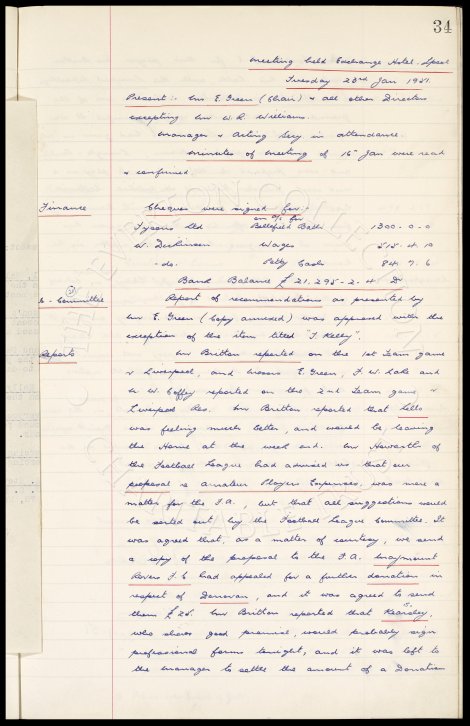 34
Meeting held Exchange Hotel. Lpool
Tuesday 23rd Jan 1951.
Present:- Mr E. Green (Chair) & all other Directors
excepting Mr W. R. Williams.
Manager & Acting Secy in attendance.
Minutes of Meeting of 16th Jan were read
& confirmed.
Finance
Cheques were signed for:-
on a/c for
Tysons Ltd Bellefield Baths 1300 - 0 - 0
W. Dickinson Wages 515 . 4 . 10
- do. Petty Cash 84 . 9 . 6
Bank Balance £21,295 - 2 - 4 Dr
Committee
Report of recommendations as presented by
Mr E. Green (copy annexed) was approved with the
exception of the item titled "J. Kelly".
Reports
Mr Britton reported on the 1st Team game
v Liverpool, and Messrs E. Green, F. W. Lake and
W. Coffey reported on the 2nd Team game v
Liverpool Res. Mr Britton reported that Lello
was feeling much better, and would be leaving
the Home at the week end. Mr Howarth of
the Football League had advised us that our
proposal re Amateur Players Expenses, was more a
matter for the F.A., but that all suggestions would
be sorted out by the Football League Committee. It
was agreed that, as a matter of courtesy, we send
a copy of the proposal to the F.A. Maymount
Rovers F.C. had appealed for a further donation in
respect of Donovan, and it was agreed to send
them £25. Mr Britton reported that Kearsley,
who shows good promise, would probably sign
professional forms tonight, and it was left to
the Manager to settle the amount of a Donation